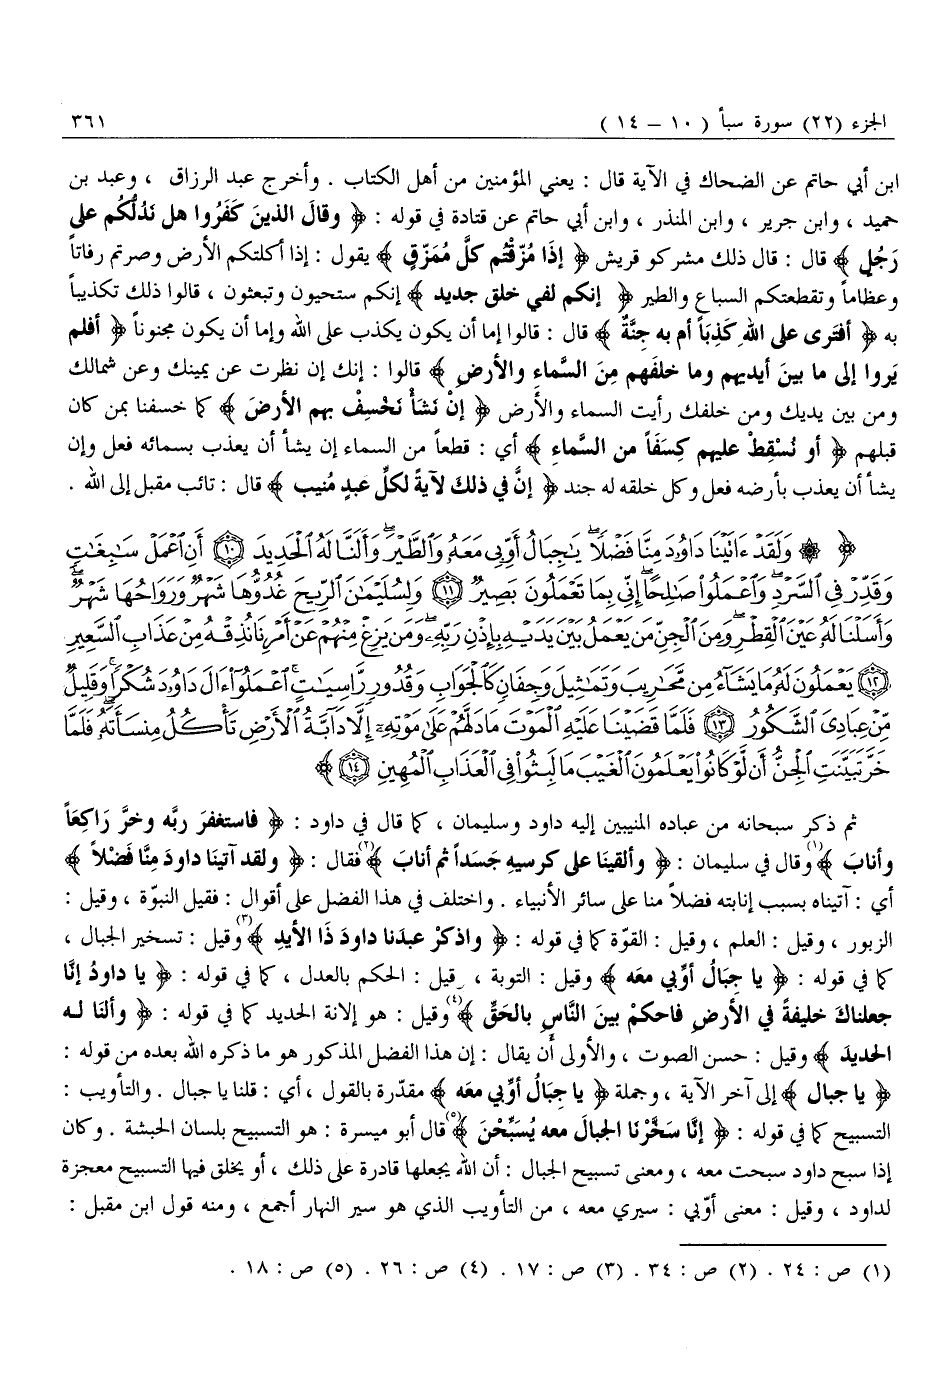 الجزء (٢٢) سورة سبأ ( ١٠ - ١٤ ) ٣٦١
ابن أبي حاتم عن الضحاك في الآية قال : يعني المؤمنين من أهل الكتاب . وأخرج عبد الرزاق ، وعبد بن
حميد ، وابن جرير ، وابن المنذر ، وابن أبي حاتم عن قتادة في قوله : ﴿ وقالَ الذينَ كَفَرُوا هل نَدُلُّكُم على
رَجُلٍ ﴾ قال : قال ذلك مشركو قريش ﴿ إذَا مُزِّقْتُم كلَّ مُمَزّقٍ ﴾ يقول : إذا أكلتكم الأرض وصرتم رفاتاً
وعظاماً وتقطعتكم السباع والطير ﴿ إنكم لفي خلق جديد ﴾ إنكم ستحيون وتبعثون ، قالوا ذلك تكذيباً
به ﴿ أفترى على اللهِ كَذِبَاً أم به جِنَّةٌ ﴾ قال : قالوا إما أن يكون يكذب على الله وإما أن يكون مجنوناً ﴿ أفلم
يَروا إلى ما بينَ أيديهم وما خلفَهم مِنَ السَّماءِ والأرضِ ﴾ قالوا : إنك إن نظرت عن يمينك وعن شمالك
ومن بين يديك ومن خلفك رأيت السماء والأرض ﴿ إنْ نَشَأْ نَخْسِفْ بهم الأرضَ ﴾ كما خسفنا بمن كان
قبلهم ﴿ أو نُسْقِطْ عليهم كِسَفَاً من السَّماءِ ﴾ أي : قطعاً من السماء إن يشأ أن يعذب بسمائه فعل وإن
يشأ أن يعذب بأرضه فعل وكل خلقه له جند ﴿ إنَّ في ذلكَ لآيةً لكلِّ عبدٍ مُنيب ﴾ قال : تائب مقبل إلى الله .
﴿ ۞ وَلَقَدْ ءَاتَيْنَا دَاوُۥدَ مِنَّا فَضْلًاۖ يَٰجِبَالُ أَوِّبِى مَعَهُۥ وَٱلطَّيْرَۖ وَأَلَنَّا لَهُ ٱلْحَدِيدَ ﴿١٠﴾ أَنِ ٱعْمَلْ سَٰبِغَٰتٍ
وَقَدِّرْ فِى ٱلسَّرْدِۖ وَٱعْمَلُوا۟ صَٰلِحًاۖ إِنِّى بِمَا تَعْمَلُونَ بَصِيرٌ ﴿١١﴾ وَلِسُلَيْمَٰنَ ٱلرِّيحَ غُدُوُّهَا شَهْرٌ وَرَوَاحُهَا شَهْرٌۖ
وَأَسَلْنَا لَهُۥ عَيْنَ ٱلْقِطْرِۖ وَمِنَ ٱلْجِنِّ مَن يَعْمَلُ بَيْنَ يَدَيْهِ بِإِذْنِ رَبِّهِۦۖ وَمَن يَزِغْ مِنْهُمْ عَنْ أَمْرِنَا نُذِقْهُ مِنْ عَذَابِ ٱلسَّعِيرِ
﴿١٢﴾ يَعْمَلُونَ لَهُۥ مَا يَشَآءُ مِن مَّحَٰرِيبَ وَتَمَٰثِيلَ وَجِفَانٍ كَٱلْجَوَابِ وَقُدُورٍ رَّاسِيَٰتٍۚ ٱعْمَلُوٓا۟ ءَالَ دَاوُۥدَ شُكْرًاۚ وَقَلِيلٌ
مِّنْ عِبَادِىَ ٱلشَّكُورُ ﴿١٣﴾ فَلَمَّا قَضَيْنَا عَلَيْهِ ٱلْمَوْتَ مَا دَلَّهُمْ عَلَىٰ مَوْتِهِۦٓ إِلَّا دَآبَّةُ ٱلْأَرْضِ تَأْكُلُ مِنسَأَتَهُۥۖ فَلَمَّا
خَرَّ تَبَيَّنَتِ ٱلْجِنُّ أَن لَّوْ كَانُوا۟ يَعْلَمُونَ ٱلْغَيْبَ مَا لَبِثُوا۟ فِى ٱلْعَذَابِ ٱلْمُهِينِ ﴿١٤﴾ ﴾
ثم ذكر سبحانه من عباده المنيبين إليه داود وسليمان ، كما قال في داود : ﴿ فاستغفرَ ربَّه وخرَّ رَاكِعَاً
وأنابَ ﴾(١) وقال في سليمان : ﴿ وألقينا على كرسيهِ جَسَداً ثم أنابَ ﴾(٢) فقال : ﴿ ولقد آتينَا داودَ مِنَّا فَضْلاً ﴾
أي : آتيناه بسبب إنابته فضلاً منا على سائر الأنبياء . واختلف في هذا الفضل على أقوال : فقيل النبوّة ، وقيل :
الزبور ، وقيل : العلم ، وقيل : القوّة كما في قوله : ﴿ واذكرْ عبدَنا داودَ ذَا الأيدِ ﴾(٣) وقيل : تسخير الجبال ،
كما في قوله : ﴿ يا جِبَالُ أوِّبي معَه ﴾ وقيل : التوبة ، وقيل : الحكم بالعدل ، كما في قوله : ﴿ يا داودُ إنَّا
جعلناكَ خليفةً في الأرضِ فاحكمْ بينَ النَّاسِ بالحَقِّ ﴾(٤) وقيل : هو إلانة الحديد كما في قوله : ﴿ وألنَا لـه
الحديدَ ﴾ وقيل : حسن الصوت ، والأولى أن يقال : إن هذا الفضل المذكور هو ما ذكره الله بعده من قوله :
﴿ يا جبال ﴾ إلى آخر الآية ، وجملة ﴿ يا جِبَالُ أوِّبي معَه ﴾ مقدّرة بالقول ، أي : قلنا يا جبال . والتأويب :
التسبيح كما في قوله : ﴿ إنَّا سَخَّرْنَا الجبالَ معه يُسَبِّحْنَ ﴾(٥) قال أبو ميسرة : هو التسبيح بلسان الحبشة . وكان
إذا سبح داود سبحت معه ، ومعنى تسبيح الجبال : أن الله يجعلها قادرة على ذلك ، أو يخلق فيها التسبيح معجزة
لداود ، وقيل : معنى أوّبي : سيري معه ، من التأويب الذي هو سير النهار أجمع ، ومنه قول ابن مقبل :
(١) ص : ٢٤ . (٢) ص : ٣٤ . (٣) ص : ١٧ . (٤) ص : ٢٦ . (٥) ص : ١٨ .